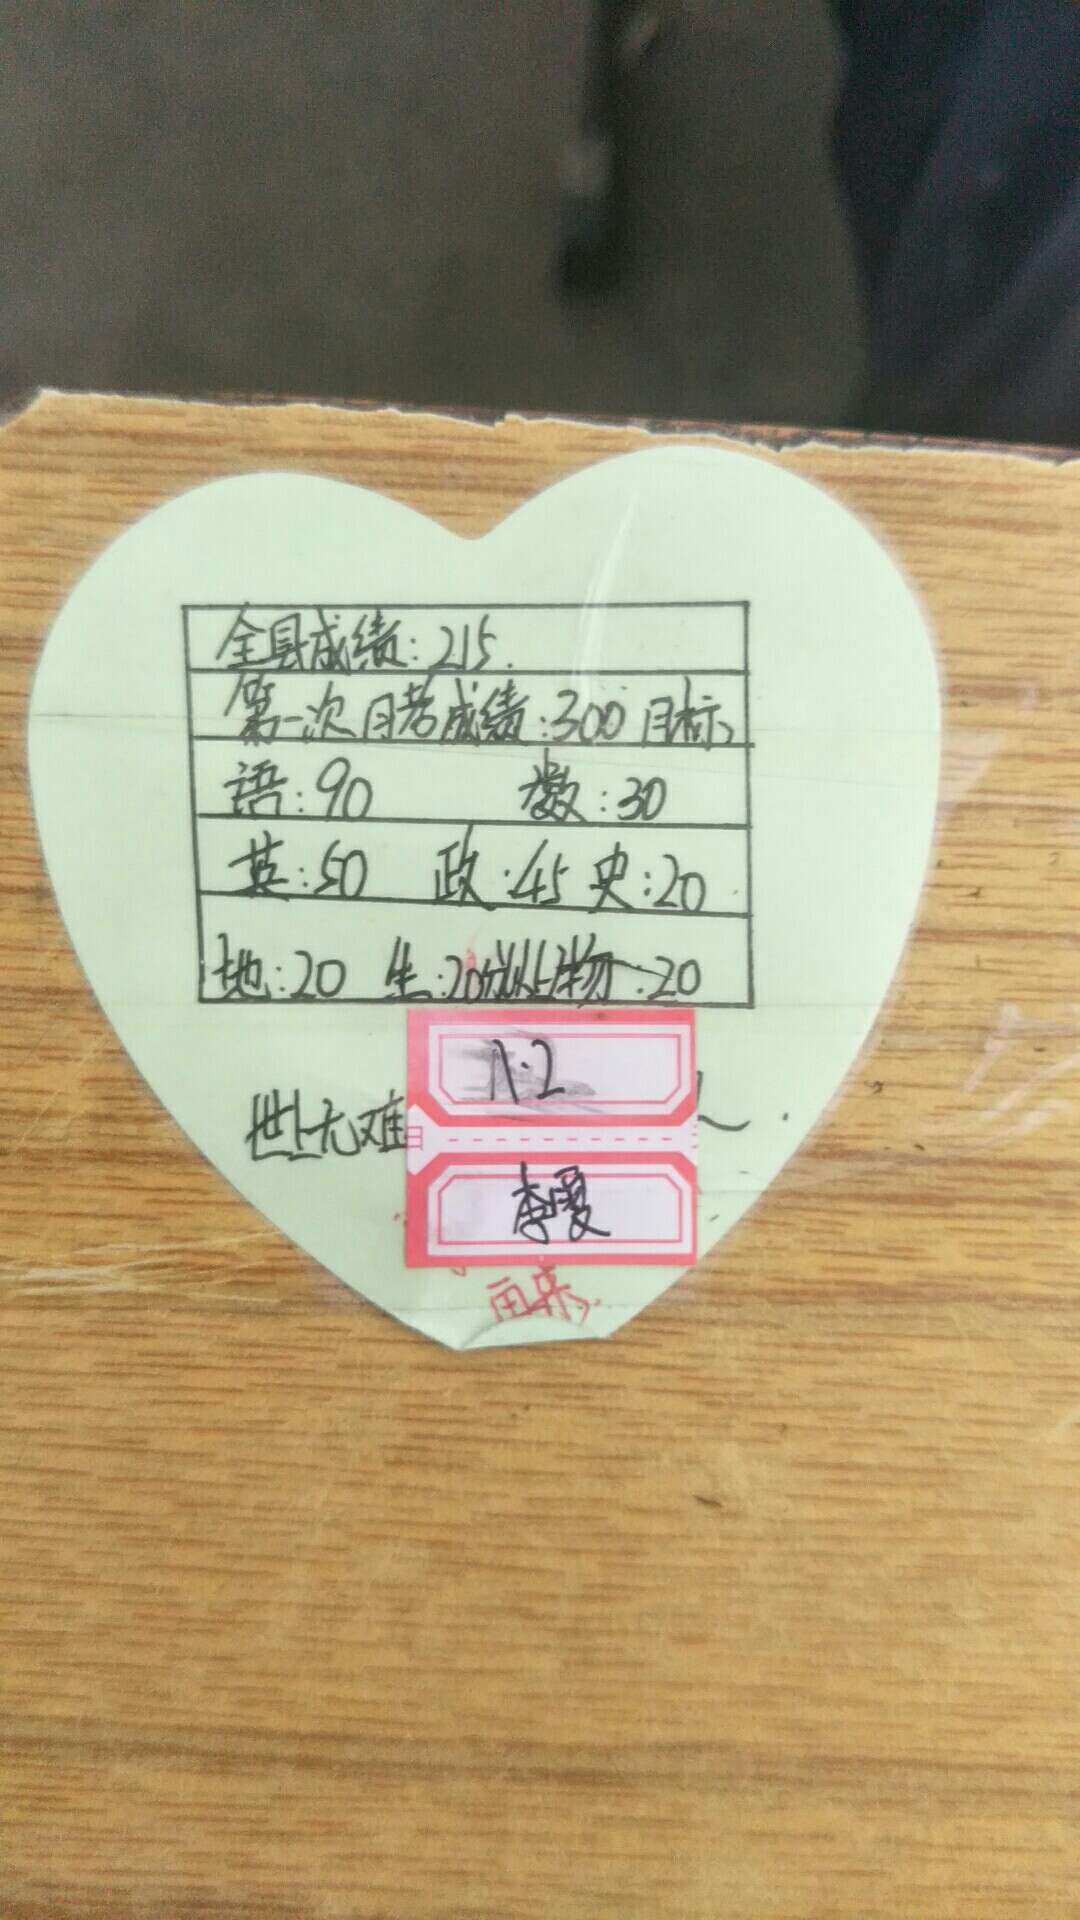 全县成绩:215.
第一次月考成绩:300目标
语:90 数:30
英:50 政:45 史:20
地:20 生:20 物:20
世上无难
八.2
李夏